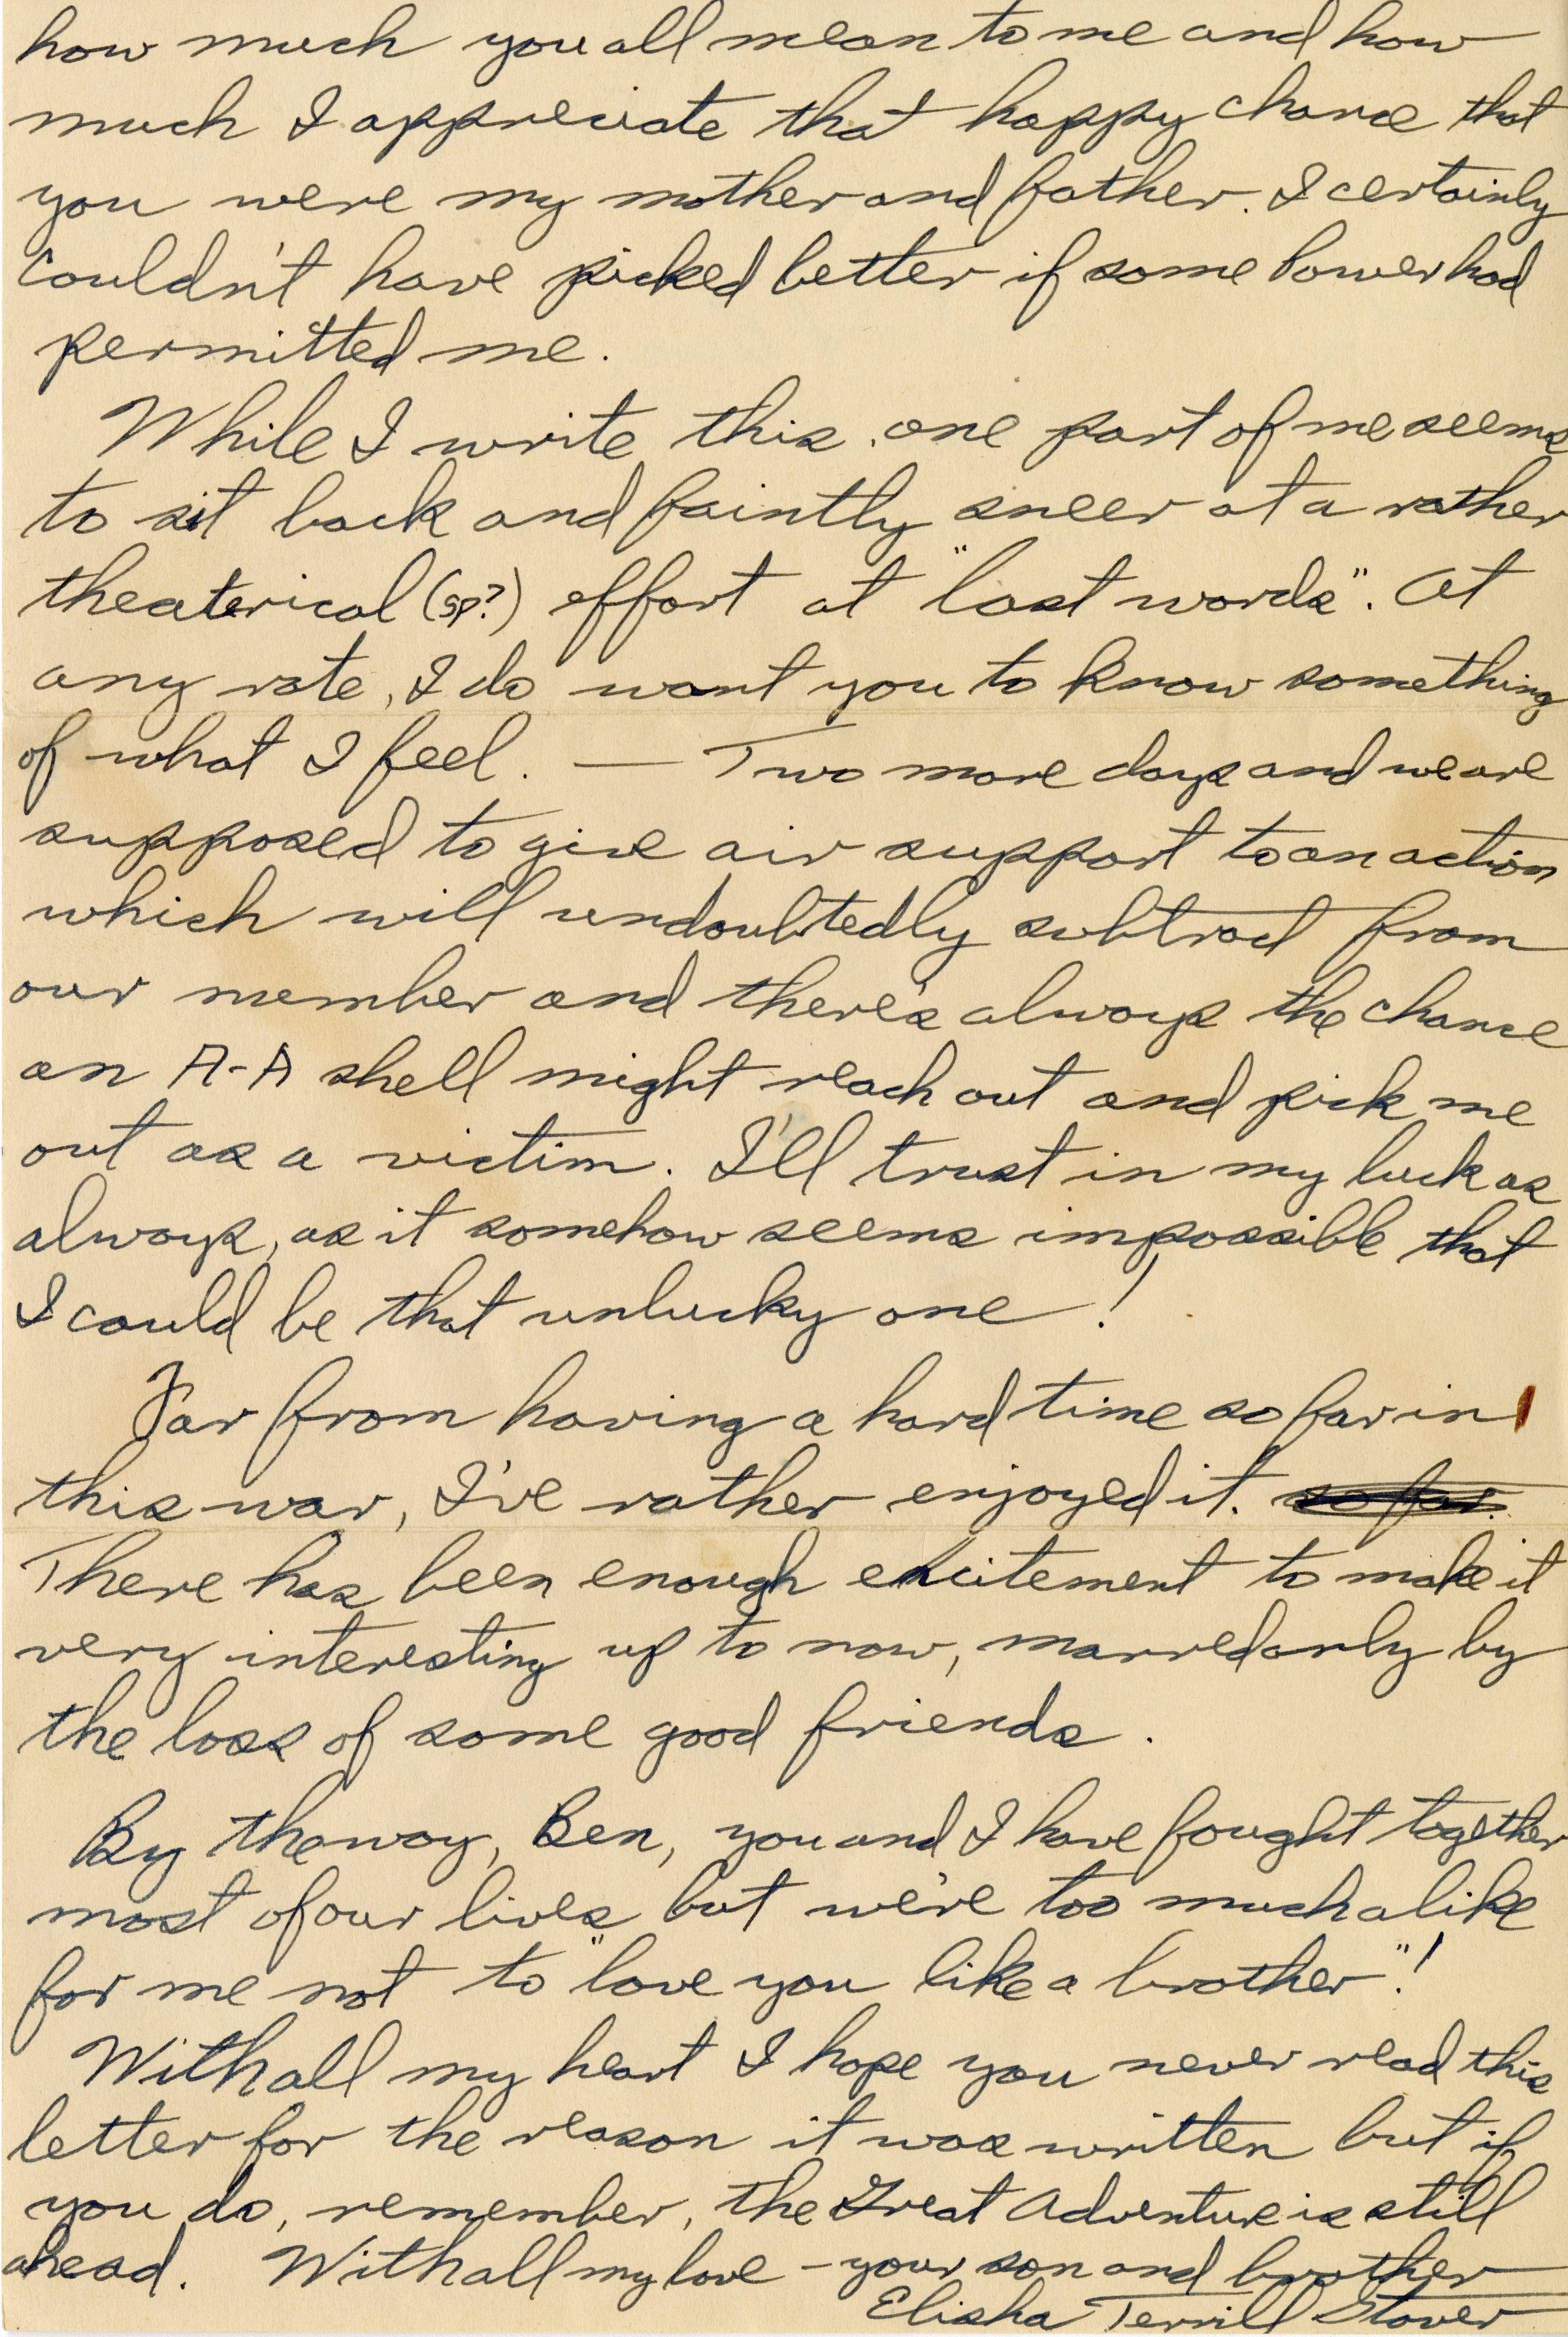 how much you all mean to me and how
much I appreciate that happy chance that
you were my mother and father. I certainly
couldn't have picked better if some Power had
permitted me.
While I write this, one part of me seems
to sit back and faintly sneer at a rather
theaterical (sp?) effort at "last words". At
any rate, I do want you to know something
of what I feel. — Two more days and we are
supposed to give air support to an action
which will undoubtedly subtract from
our member and there's always the chance
an A-A shell might reach out and pick me
out as a victim. I'll trust in my luck as
always, as it somehow seems impossible that
I could be that unlucky one!
Far from having a hard time so far in
this war, I've rather enjoyed it. so far.
There has been enough excitement to make it
very interesting up to now, marred only by
the loss of some good friends.
By the way, Ben, you and I have fought together
most of our lives but we're too much alike
for me not to "love you like a brother"!
With all my heart I hope you never read this
letter for the reason it was written but if
you do, remember, the Great Adventure is still
ahead. With all my love – your son and brother
Elisha Terrill Stover